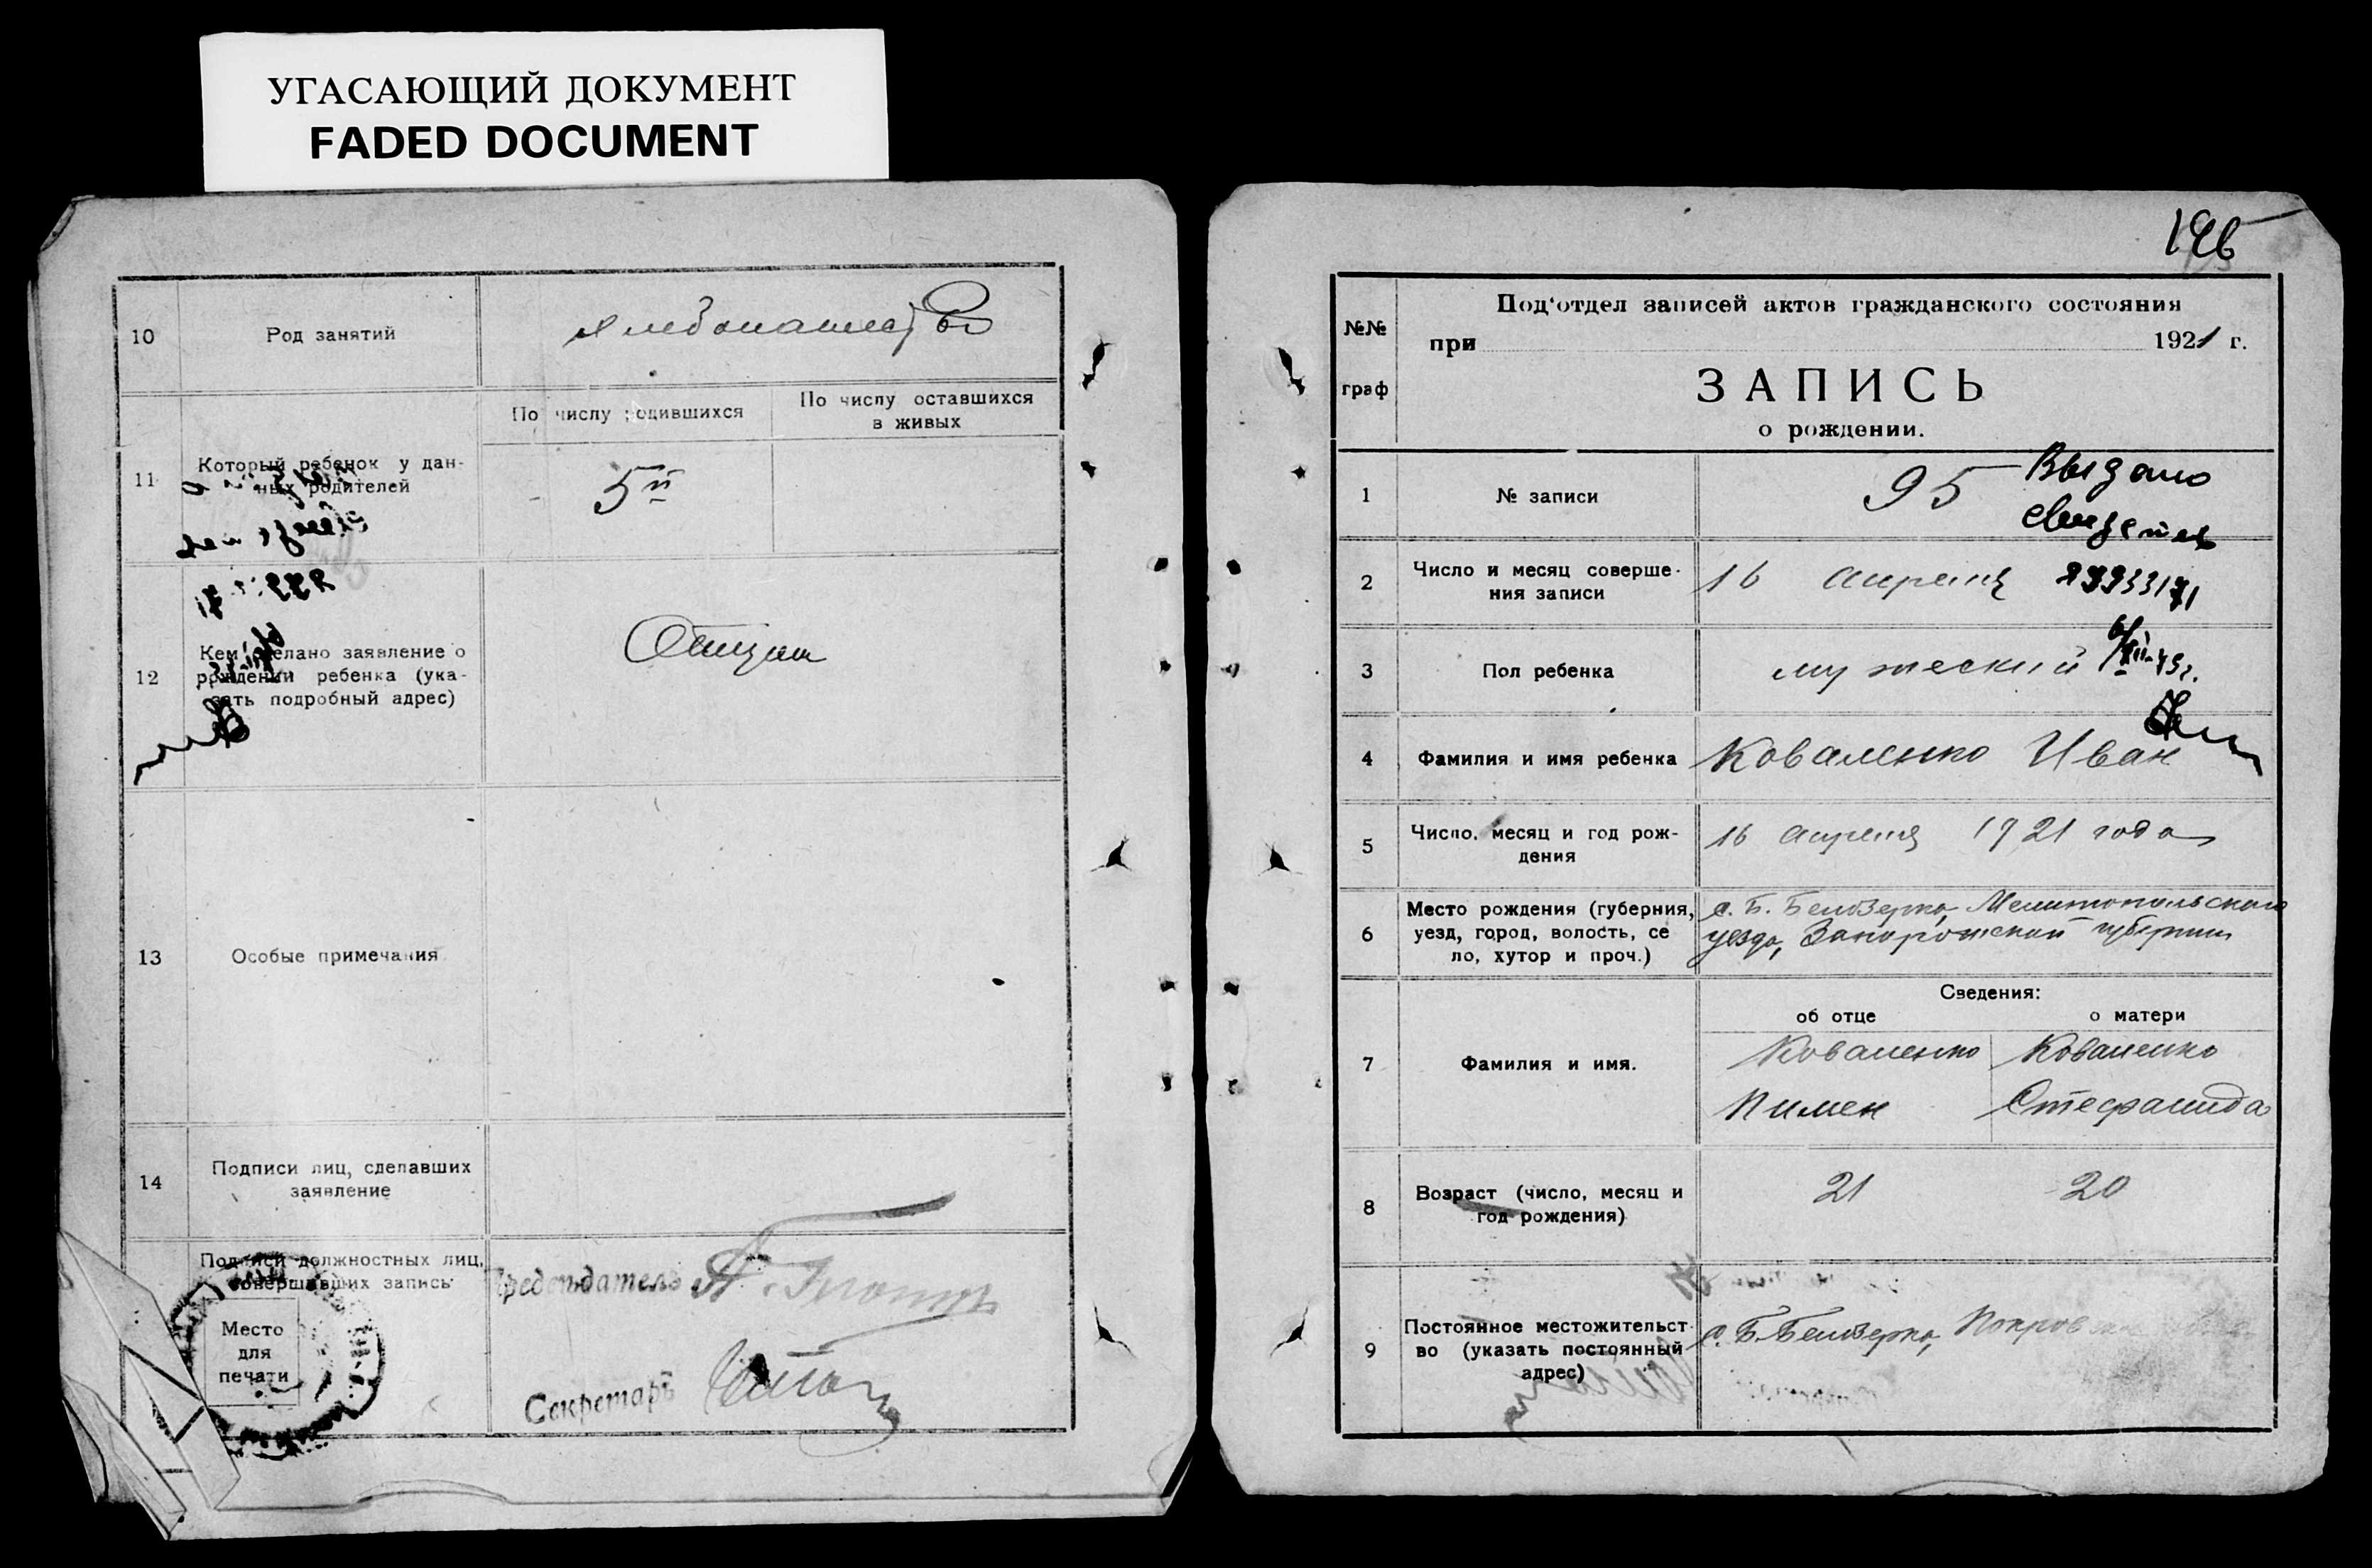 УГАСАЮЩИЙ ДОКУМЕНТ
FADED DOCUMENT
10
Род занятий
хлебопашество
11
Который ребенок у дан-
ных родителей
По числу родившихся
По числу оставшихся
в живых
5й
12
Кем сделано заявление о
рождении ребенка (ука-
зать подробный адрес)
Отцом
13
Особые примечания
14
Подписи лиц, сделавших
заявление
Подписи должностных лиц,
совершивших запись
Место
для
печати
Председатель
Секретарь
№№
граф
Под'отдел записей актов гражданского состояния
при 1921 г.
ЗАПИСЬ
о рождении.
1
№ записи
95
Выдано
свидетел
2
Число и месяц соверше-
ния записи
16 апреля
3
Пол ребенка
мужеский
4
Фамилия и имя ребенка
Коваленко Иван
5
Число, месяц и год рож-
дения
16 апреля 1921 года
6
Место рождения (губерния,
уезд, город, волость, се
ло, хутор и проч.)
с. Б. Белозерка, Мелитопольского
уезда, Запорожской губернии
Сведения:
об отце
о матери
7
Фамилия и имя.
Коваленко
Пимен
Коваленко
Стефанида
8
Возраст (число, месяц и
год рождения)
21
20
9
Постоянное местожительст-
во (указать постоянный
адрес)
с. Б. Белозерка,